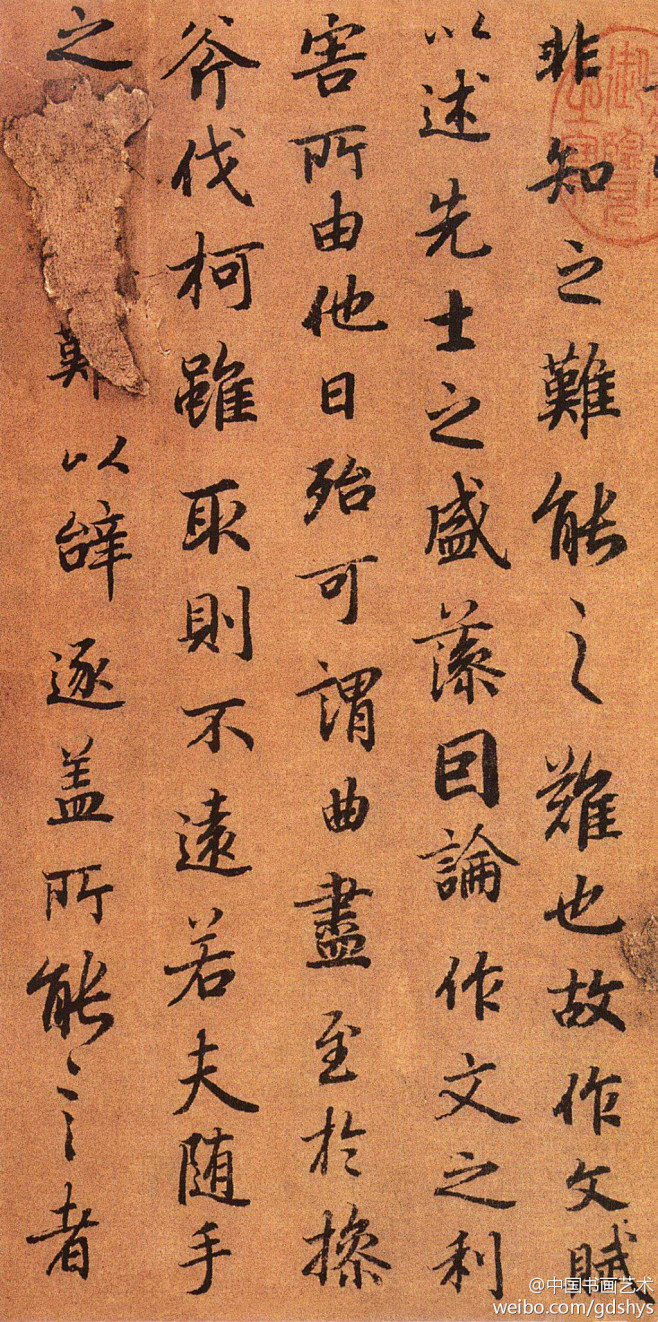 非知之難能之難也故作文賦
以述先士之盛藻囙論作文之利
害所由他日殆可謂曲盡至於操
斧伐柯雖取則不遠若夫随手
之難以辝逐盖所能之者
@中国书画艺术
weibo.com/gdshys